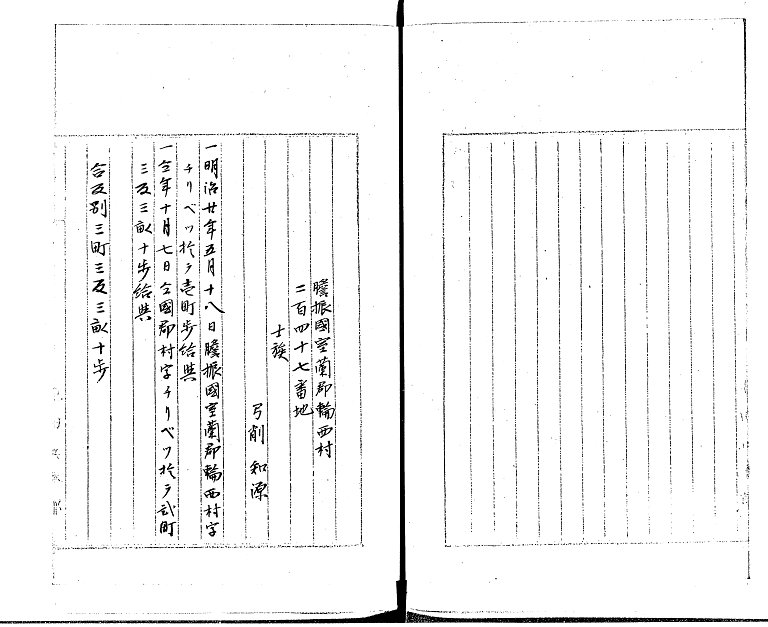 膽振國室蘭郡輪西村
二百四十七番地
士族
弓削 和源
一明治廿年五月十八日膽振國室蘭郡輪西村字
チリベツ於テ壱町歩給與
一仝年十月七日仝國郡村字チリベツ於テ弐町
三反三畝十歩給與
合反別三町三反三畝十歩